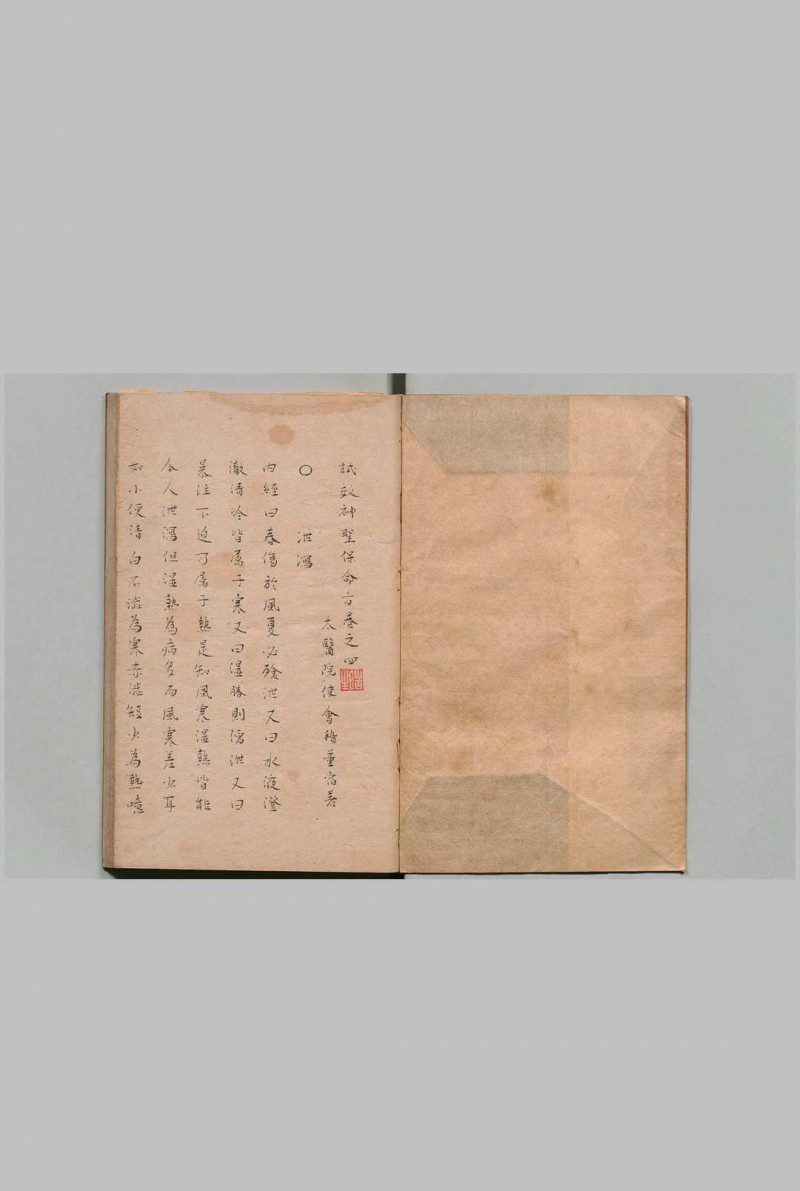 試效神聖保命方卷之四
太醫院使會稽董宿著
○ 泄瀉
內經曰春傷於風夏必飱泄又曰水液澄
澈清冷皆属于寒又曰濕勝則濡泄又曰
暴注下迫乃属于熱是知風寒濕熱皆能
令人泄瀉但濕熱為病多而風寒差少耳
如小便清白不澁為寒赤澁短少為熱噫